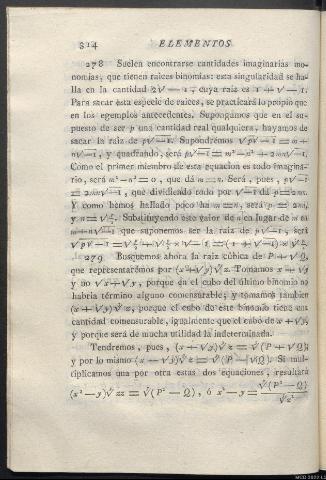 314 ELEMENTOS
278 Suelen encontrarse cantidades imaginarias mo-
nomias, que tienen raices binomias: esta singularidad se ha-
lla en la cantidad 2√—1, cuya raiz es 1+√—1.
Para sacar esta especie de raices, se practicará lo propio que
en los egemplos antecedentes. Supongamos que en el su-
puesto de ser p una cantidad real qualquiera, hayamos de
sacar la raiz de p√—1. Supondrémos √p√—1 = m+
n√—1, y quadrando, será p√—1 = m²—n²+2mn√—1.
Como el primer miembro de esta equacion es todo imagina-
rio, será m²—n²=0, que dá m=n. Será, pues, p√—1
= 2mn√—1, que dividiendo todo por √—1 dá p=2mn.
Y como hemos hallado poco ha m=n, será p=2nn,
y n=√p/2. Substituyendo este valor de n en lugar de m en
m+n√—1 que suponemos ser la raiz de p√—1, será
√p√—1 = √p/2+√p/2×√—1 = (1+√—1)×√p/2.
279 Busquemos ahora la raiz cúbica de P+√Q,
que representarémos por (x+√y)∛z. Tomamos x+√y
y no √x+√y, porque en el cubo del último binomio no
habria término alguno comensurable, y tomamos tambien
(x+√y)∛z, porque el cubo de este binomio tiene una
cantidad comensurable, igualmente que el cubo de x+√y,
y porque será de mucha utilidad la indeterminada.
Tendremos, pues, (x+√y)∛z = ∛(P+√Q);
y por lo mismo (x—√y)∛z = ∛(P—√Q). Si mul-
tiplicamos una por otra estas dos equaciones, resultará
(x²—y)∛zz = ∛(P²—Q), ó x²—y = ∛(P²—Q)/∛z²